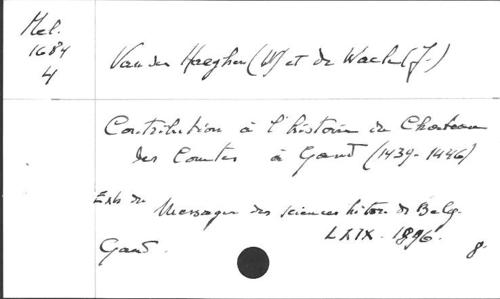 Mel.
1684
4
Van der Haeghen (V) et de Waele (J.)
Contribution à l'histoire du Chateau
des Comtes à Gand (1439-1446)
Extr. du Messager des sciences histor. de Belg.
LXIX. 1896.
Gand.
8.